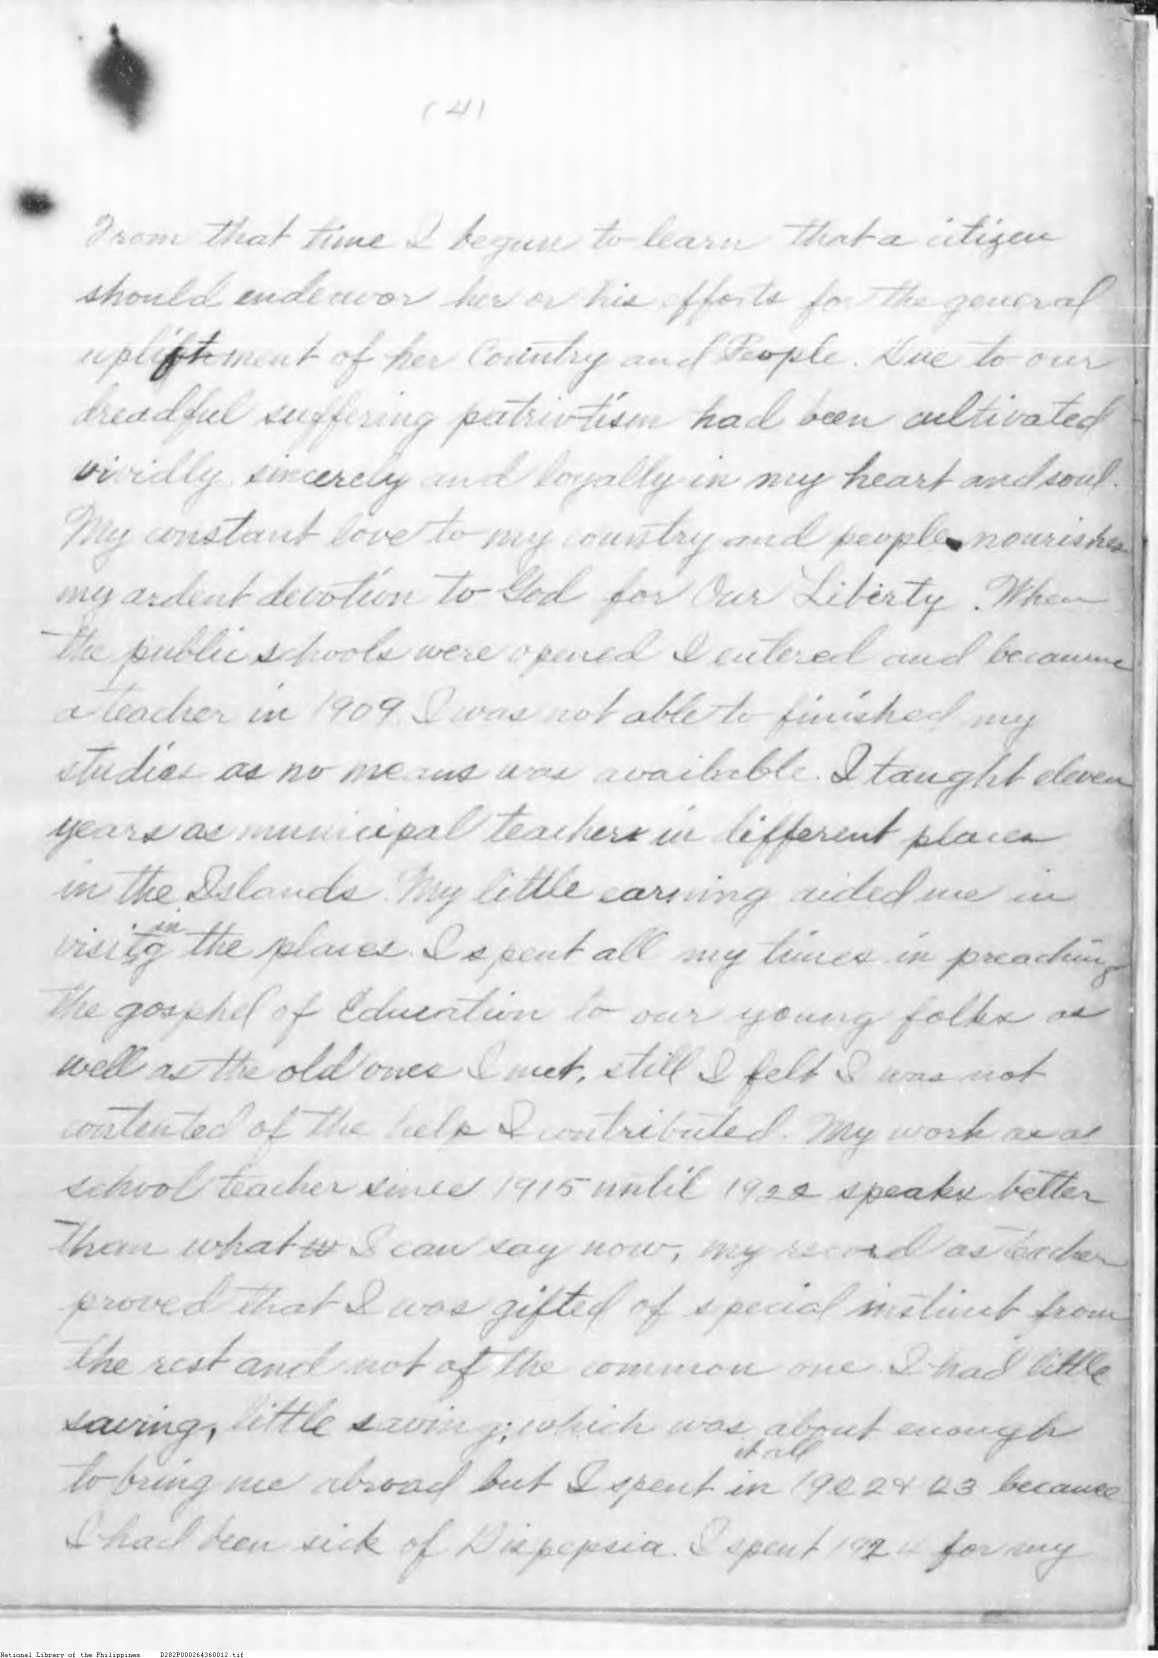 (4)
From that time I begun to learn that a citizen
should endeavor her or his efforts for the general
upliftment of her Country and People. Due to our
dreadful suffering patriotism had been cultivated
vividly, sincerely and loyally in my heart and soul.
My constant love to my country and people nourishes
my ardent devotion to God for Our Liberty. When
the public schools were opened I entered and becamme
a teacher in 1909. I was not able to finished my
studies as no means was available. I taught eleven
years as municipal teachers in different places
in the Islands. My little earning aided me in
visiting the places. I spent all my times in preaching
the gosphel of Education to our young folks as
well as the old ones I met, still I felt I was not
contented of the help I contributed. My work as a
school teacher since 1915 until 1922 speaks better
than what I can say now, my record as teacher
proved that I was gifted of special instinct from
the rest and not of the common one. I had little
saving, little saving; which was about enough
to bring me abroad but I spent it all in 1922 & 23 because
I had been sick of Dispepsia. I spent 192 for my
National Library of the Philippines D282P000264360012.tif